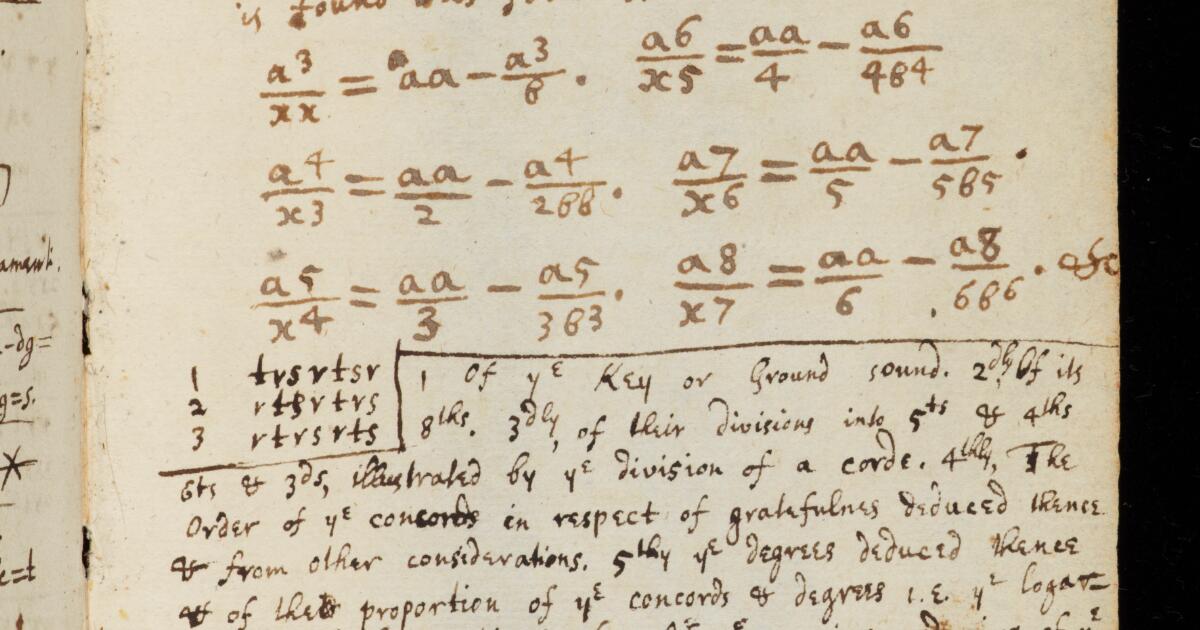 is found
a3/xx = aa − a3/b. a6/x5 = aa/4 − a6/4b4
a4/x3 = aa/2 − a4/2bb. a7/x6 = aa/5 − a7/5b5.
a5/x4 = aa/3 − a5/3b3. a8/x7 = aa/6 − a8/6b6. &c
1 trsrtsr
2 rtsrtrs
3 rtrsrts
1 Of yᵉ Key or Ground sound. 2dly Of its
8ths. 3dly, of their divisions into 5ts & 4ths
6ts & 3ds, illustrated by yᵉ division of a corde. 4thly, The
Order of yᵉ concords in respect of gratefulnes deduced thence
& from other considerations. 5thly yᵉ degrees deduced thence
& of their proportion of yᵉ concords & degrees i.e. yᵉ logar=
amant.
-dg=
g=s.
=t